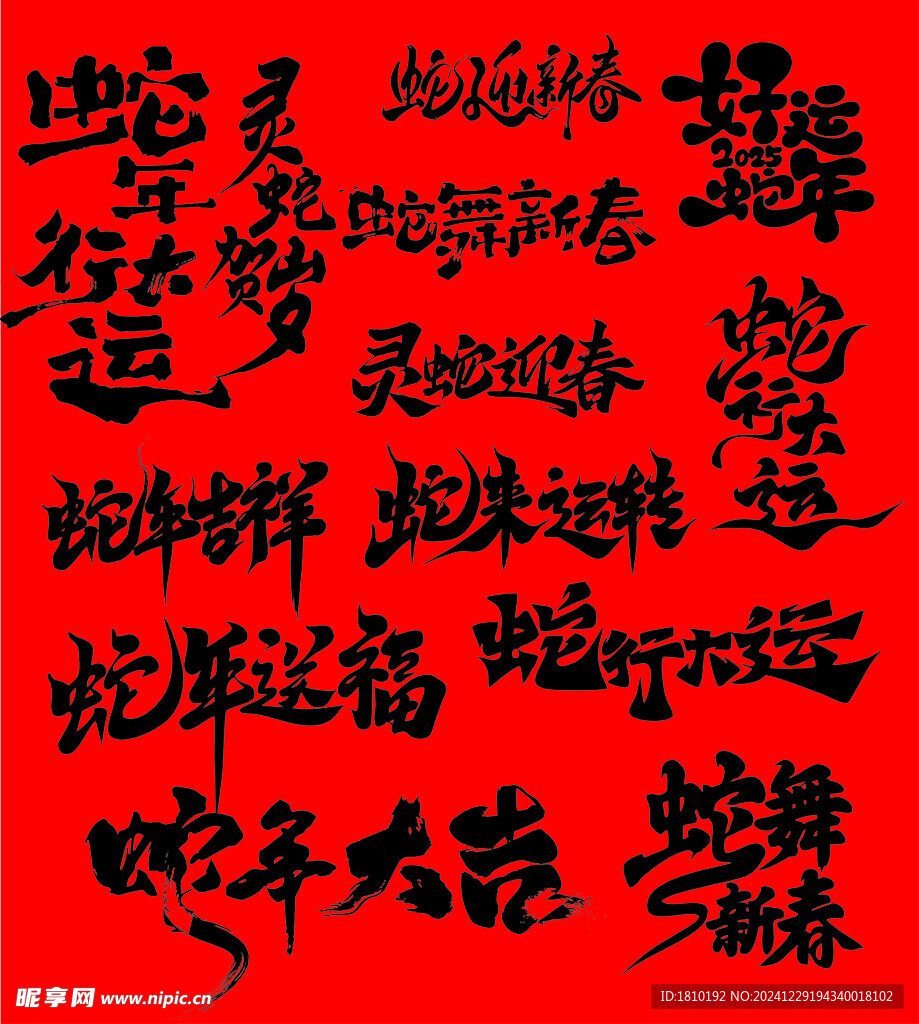 蛇年
行大
运
灵蛇
贺岁
蛇迎新春
好运
2025
蛇年
蛇舞新春
灵蛇迎春
蛇
行大
运
蛇年吉祥
蛇来运转
蛇年送福
蛇行大运
蛇年大吉
蛇舞
新春
昵享网 www.nipic.cn
ID:1810192 NO:20241229194340018102